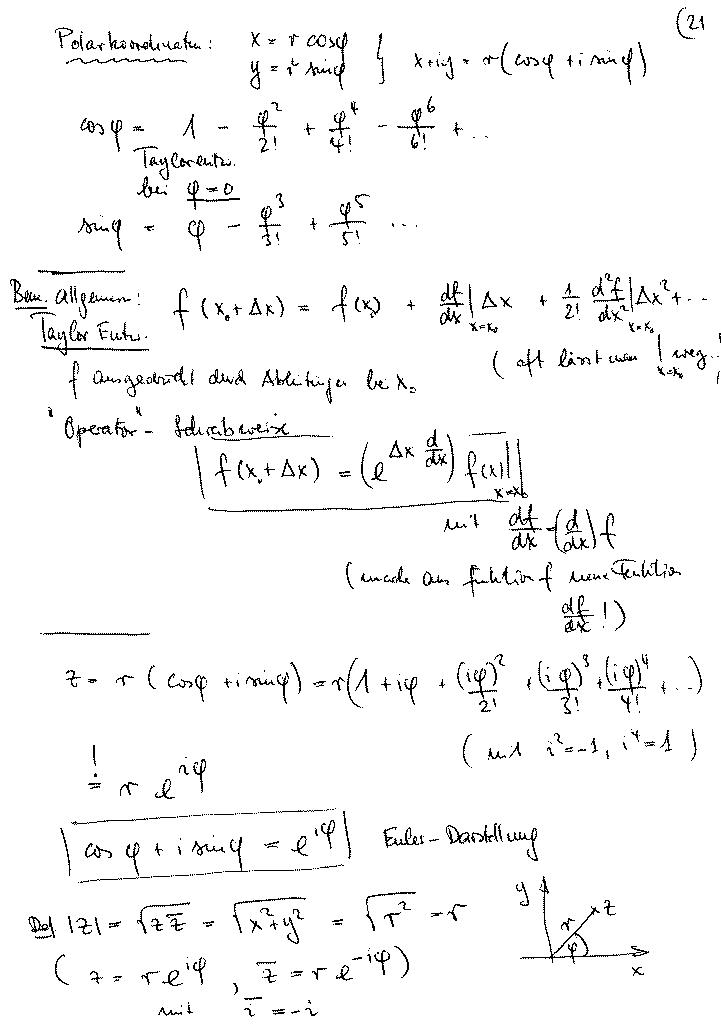 (21
Polarkoordinaten: x = r cosφ
y = r sinφ } x+iy = r(cosφ + i sinφ)
cosφ = 1 - φ²/2! + φ⁴/4! - φ⁶/6! + ..
Taylorentw.
bei φ=0
sinφ = φ - φ³/3! + φ⁵/5! ...
Bem. Allgemein: f(x₀+Δx) = f(x₀) + df/dx|x=x₀ Δx + 1/2! d²f/dx²|x=x₀ Δx² + ..
Taylor Entw.
(oft lässt man |x=x₀ weg !)
f ausgedrückt durch Ableitungen bei x₀
"Operator"-Schreibweise
f(x₀+Δx) = (e^(Δx d/dx)) f(x)|x=x₀
mit df/dx = (d/dx) f
(mache aus Funktion f neue Funktion
df/dx !)
z = r (cosφ + i sinφ) = r(1 + iφ + (iφ)²/2! + (iφ)³/3! + (iφ)⁴/4! + ..)
(mit i²=-1, i⁴=1)
! = r e^(iφ)
cos φ + i sinφ = e^(iφ) Euler-Darstellung
Def |z| = √(z z̅) = √(x²+y²) = √(r²) = r
(z = r e^(iφ), z̅ = r e^(-iφ))
mit i̅ = -i
y
r z
φ
x